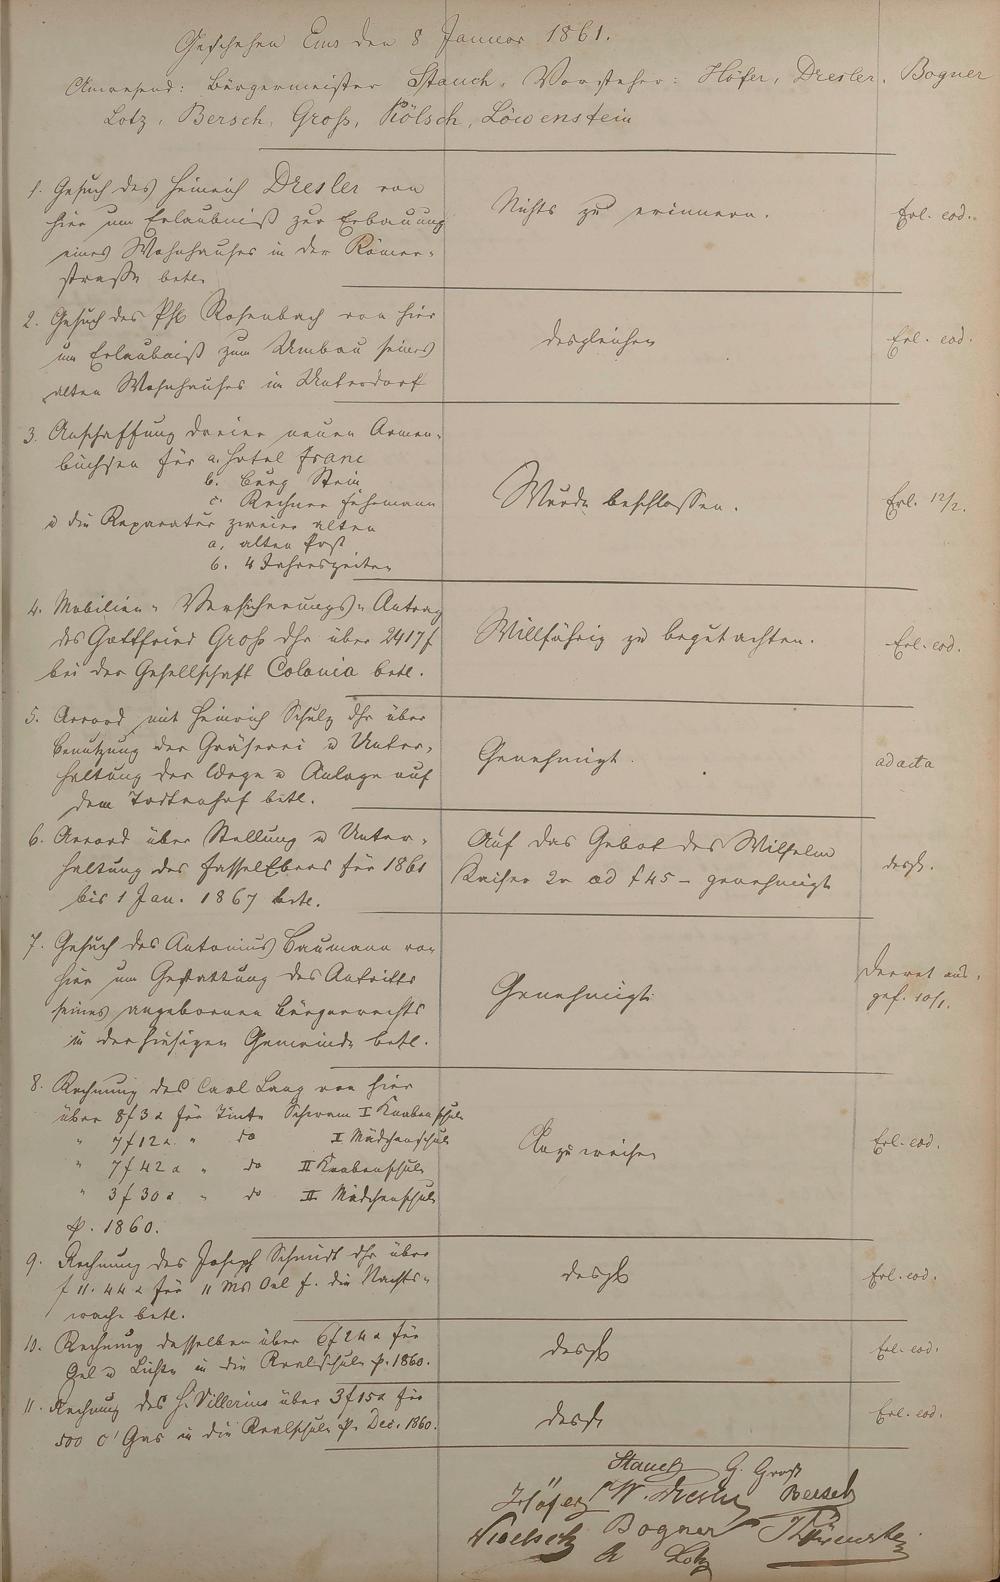 Geschehen Ems den 8 Januar 1861.
Anwesend: Bürgermeister Stauch, Vorsteher: Höfer, Dresler, Bogner
Lotz, Bersch, Groß, Kölsch, Löwenstein
1. Gesuch des Heinrich Dresler von
hier um Erlaubniß zur Erbauung
eines Wohnhauses in der Römer-
straße betr.
Nichts zu erinnern.
Erl. eod.
2. Gesuch des Phl Rosenbach von hier
um Erlaubniß zum Umbau seines
alten Wohnhauses im Unterdorf
desgleichen
Erl. eod.
3. Anschaffung dreier neuen Armen-
büchsen für a. Hotel franc
b. Burg Stein
c. Rechner Fuhrmann
u die Reparatur zweier alten
a, alten Post
b. 4 Jahreszeiten
Wurde beschlossen.
Erl. 12/2.
4. Mobilien-Versicherungs-Antrag
des Gottfried Groß dhr über 2417 f
bei der Gesellschaft Colonia betr.
Willfährig zu begutachten.
Erl. eod.
5. Accord mit Heinrich Schulz dhr über
Benutzung der Gräserei u Unter-
haltung der Wege u Anlage auf
dem Todtenhof betr.
Genehmigt.
ad acta
6. Accord über Stellung u Unter-
haltung des Fasselebers für 1861
bis 1 Jan. 1867 betr.
Auf das Gebot des Wilhelm
Kaiser 2r ad f 45 - genehmigt
desgl.
7. Gesuch des Antonius Baumann von
hier um Gestattung des Antritts
seines angebornen Bürgerrechts
in der hiesigen Gemeinde betr.
Genehmigt
Decret aus-
gef. 10/1.
8. Rechnung des Carl Lang von hier
über 8 f 3 x für Tinte Schwam I Knabenschule
" 7 f 12 x " do II Mädchenschule
" 7 f 42 x " do II Knabenschule
" 3 f 30 x " do II Mädchenschule
p. 1860.
Anzuweisen
Erl. eod.
9. Rechnung des Joseph Schmidt dhr über
f 11. 44 x für 11 Ms Oel f. die Nachts-
wache betr.
desgl
Erl. eod.
10. Rechnung desselben über 6 f 24 x für
Oel u Lichte in die Realschule p. 1860.
desgl
Erl. eod.
11. Rechnung des H. Villerius über 3 f 15 x für
500 c' Gas in die Realschule p. Dec. 1860.
desgl.
Erl. eod.
Stauch G. Groß
Höfer W. Dresler Bersch
Koelsch Bogner Löwenstein
Lotz